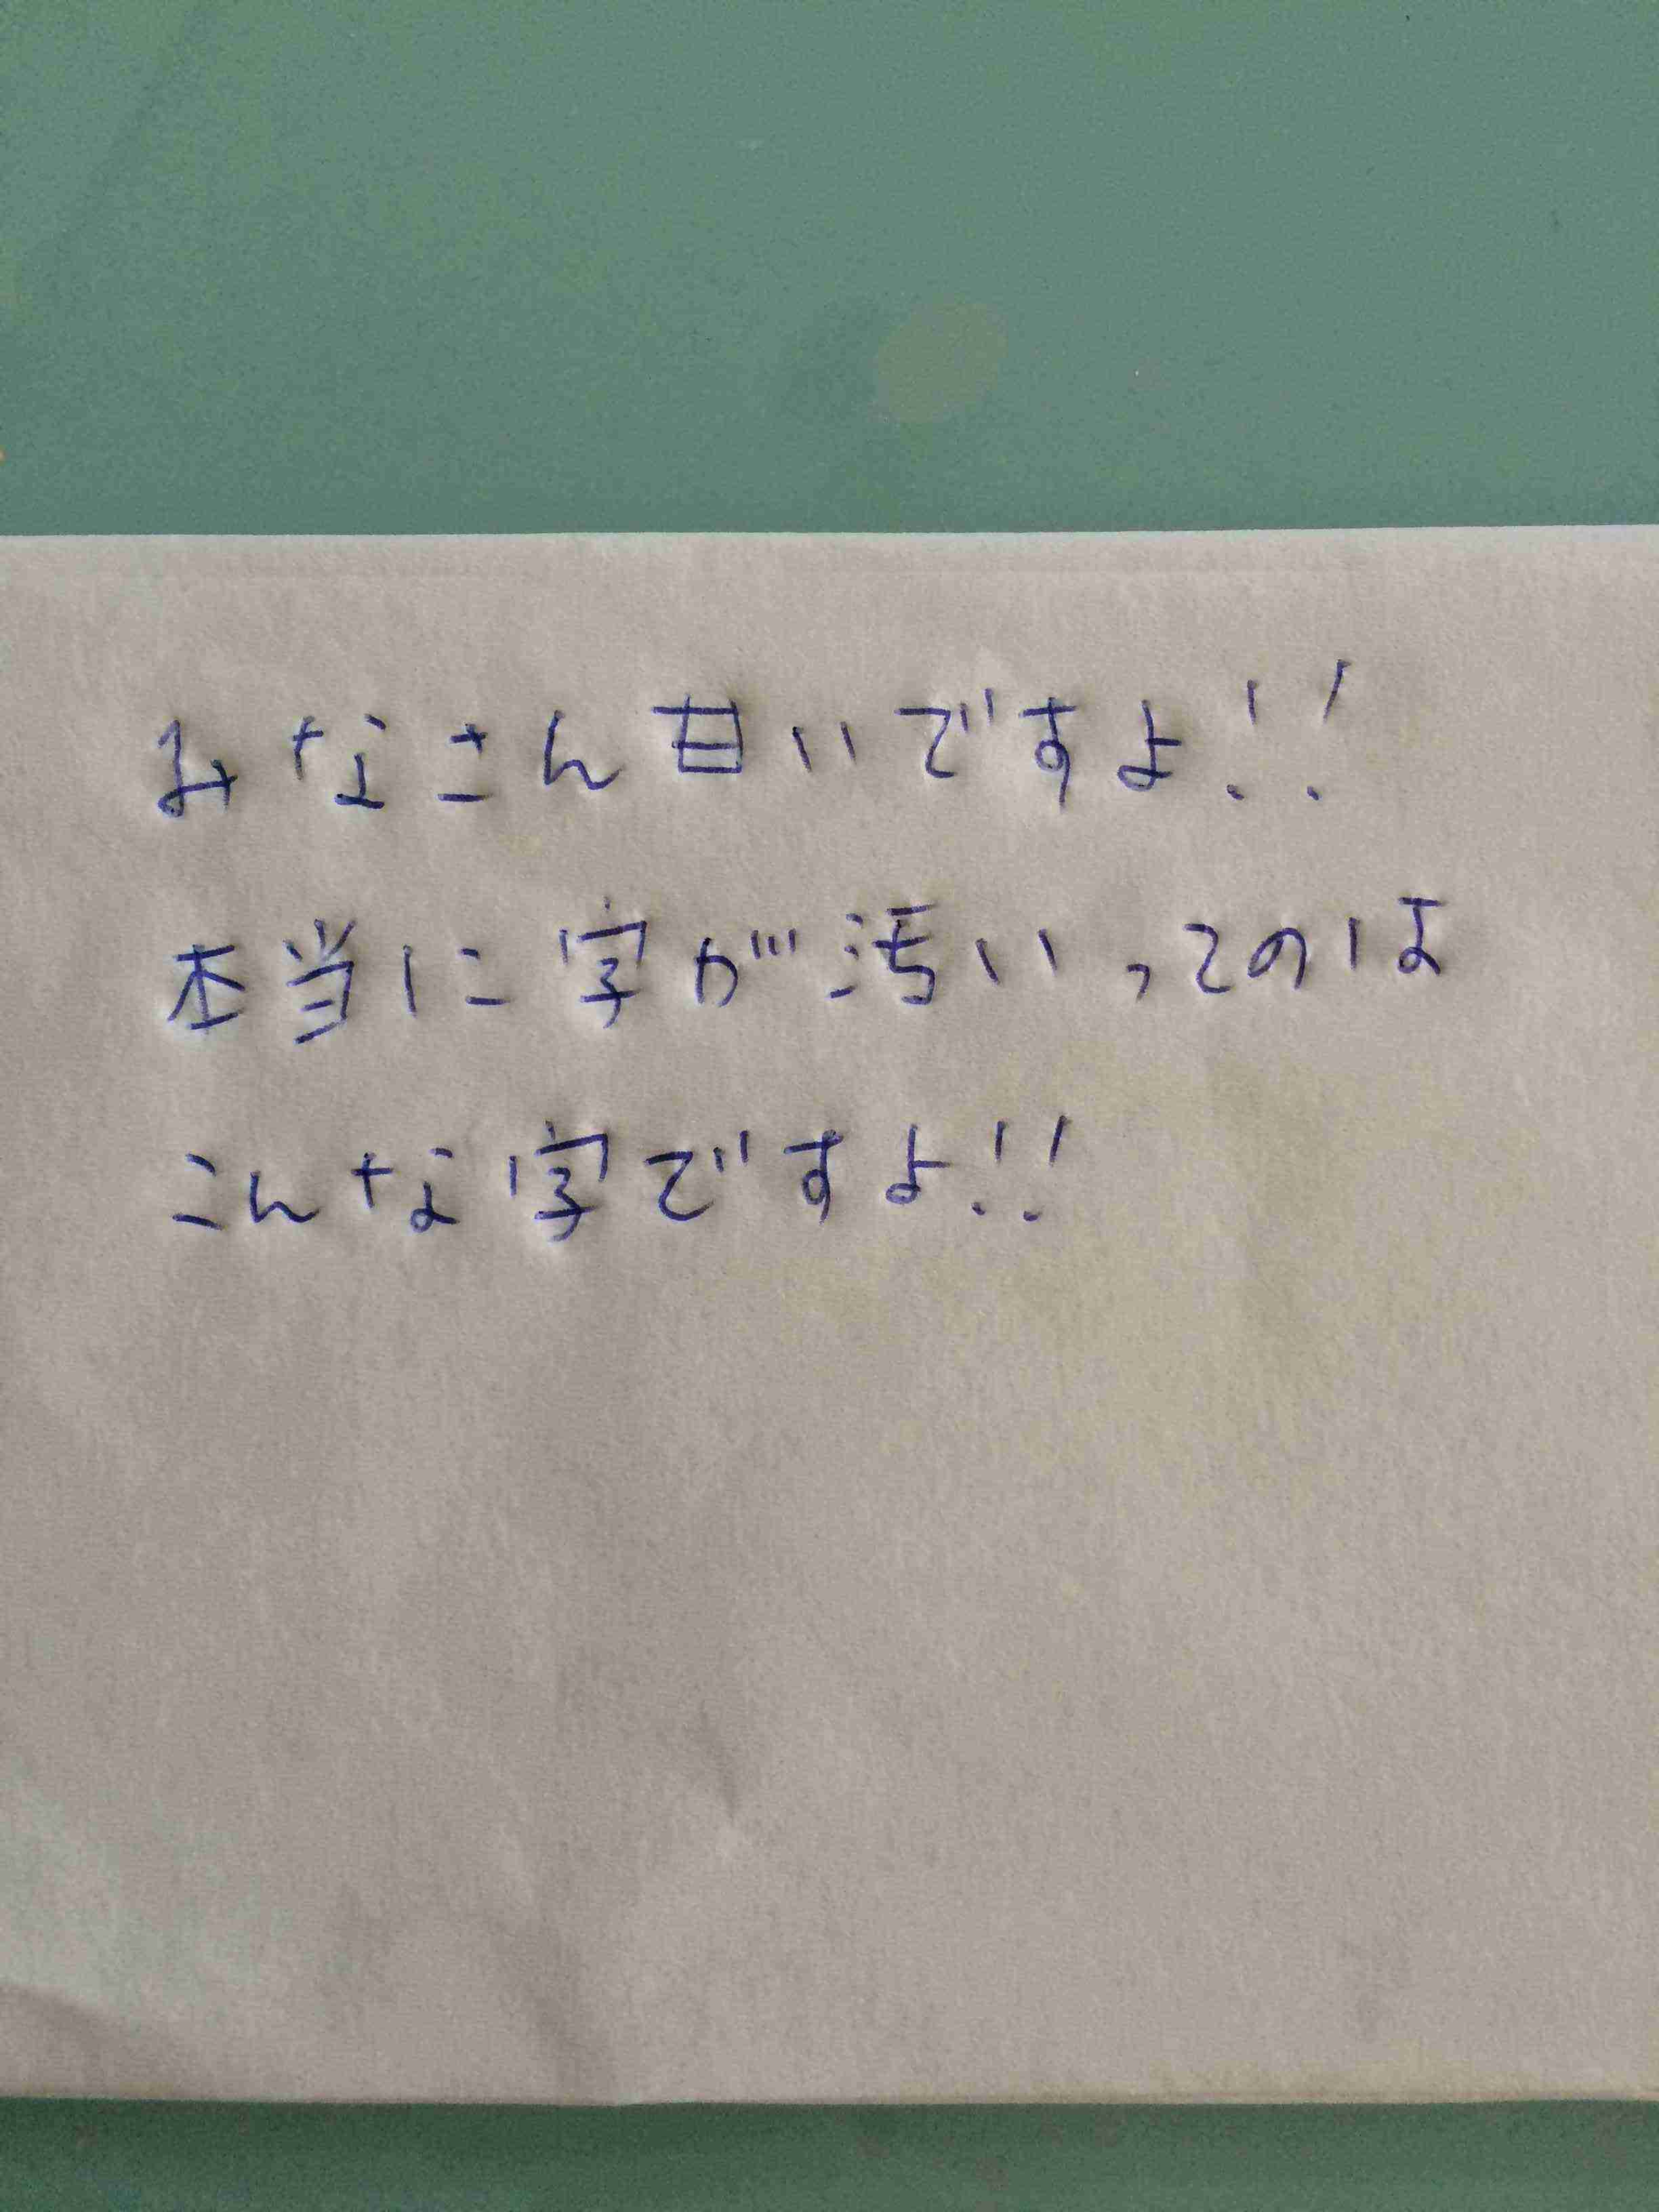 みなさん甘いですよ!!
本当に字が汚いってのは
こんな字ですよ!!